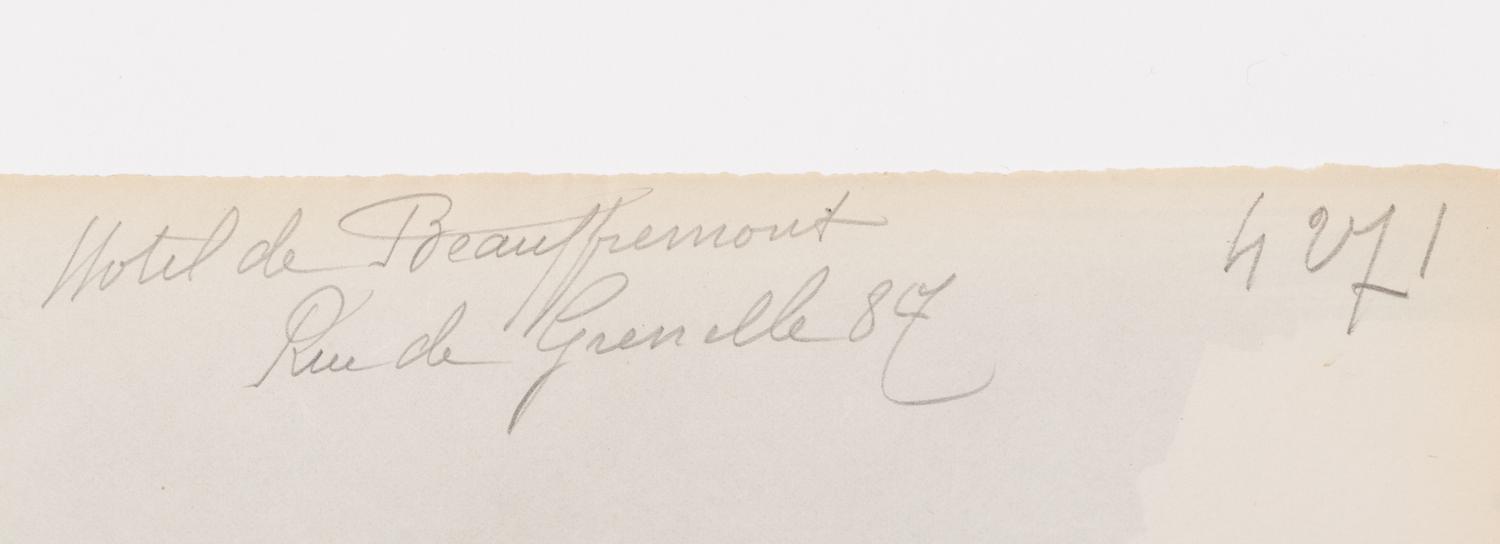 Hotel de Beauffremont 4271
Rue de Grenelle 87